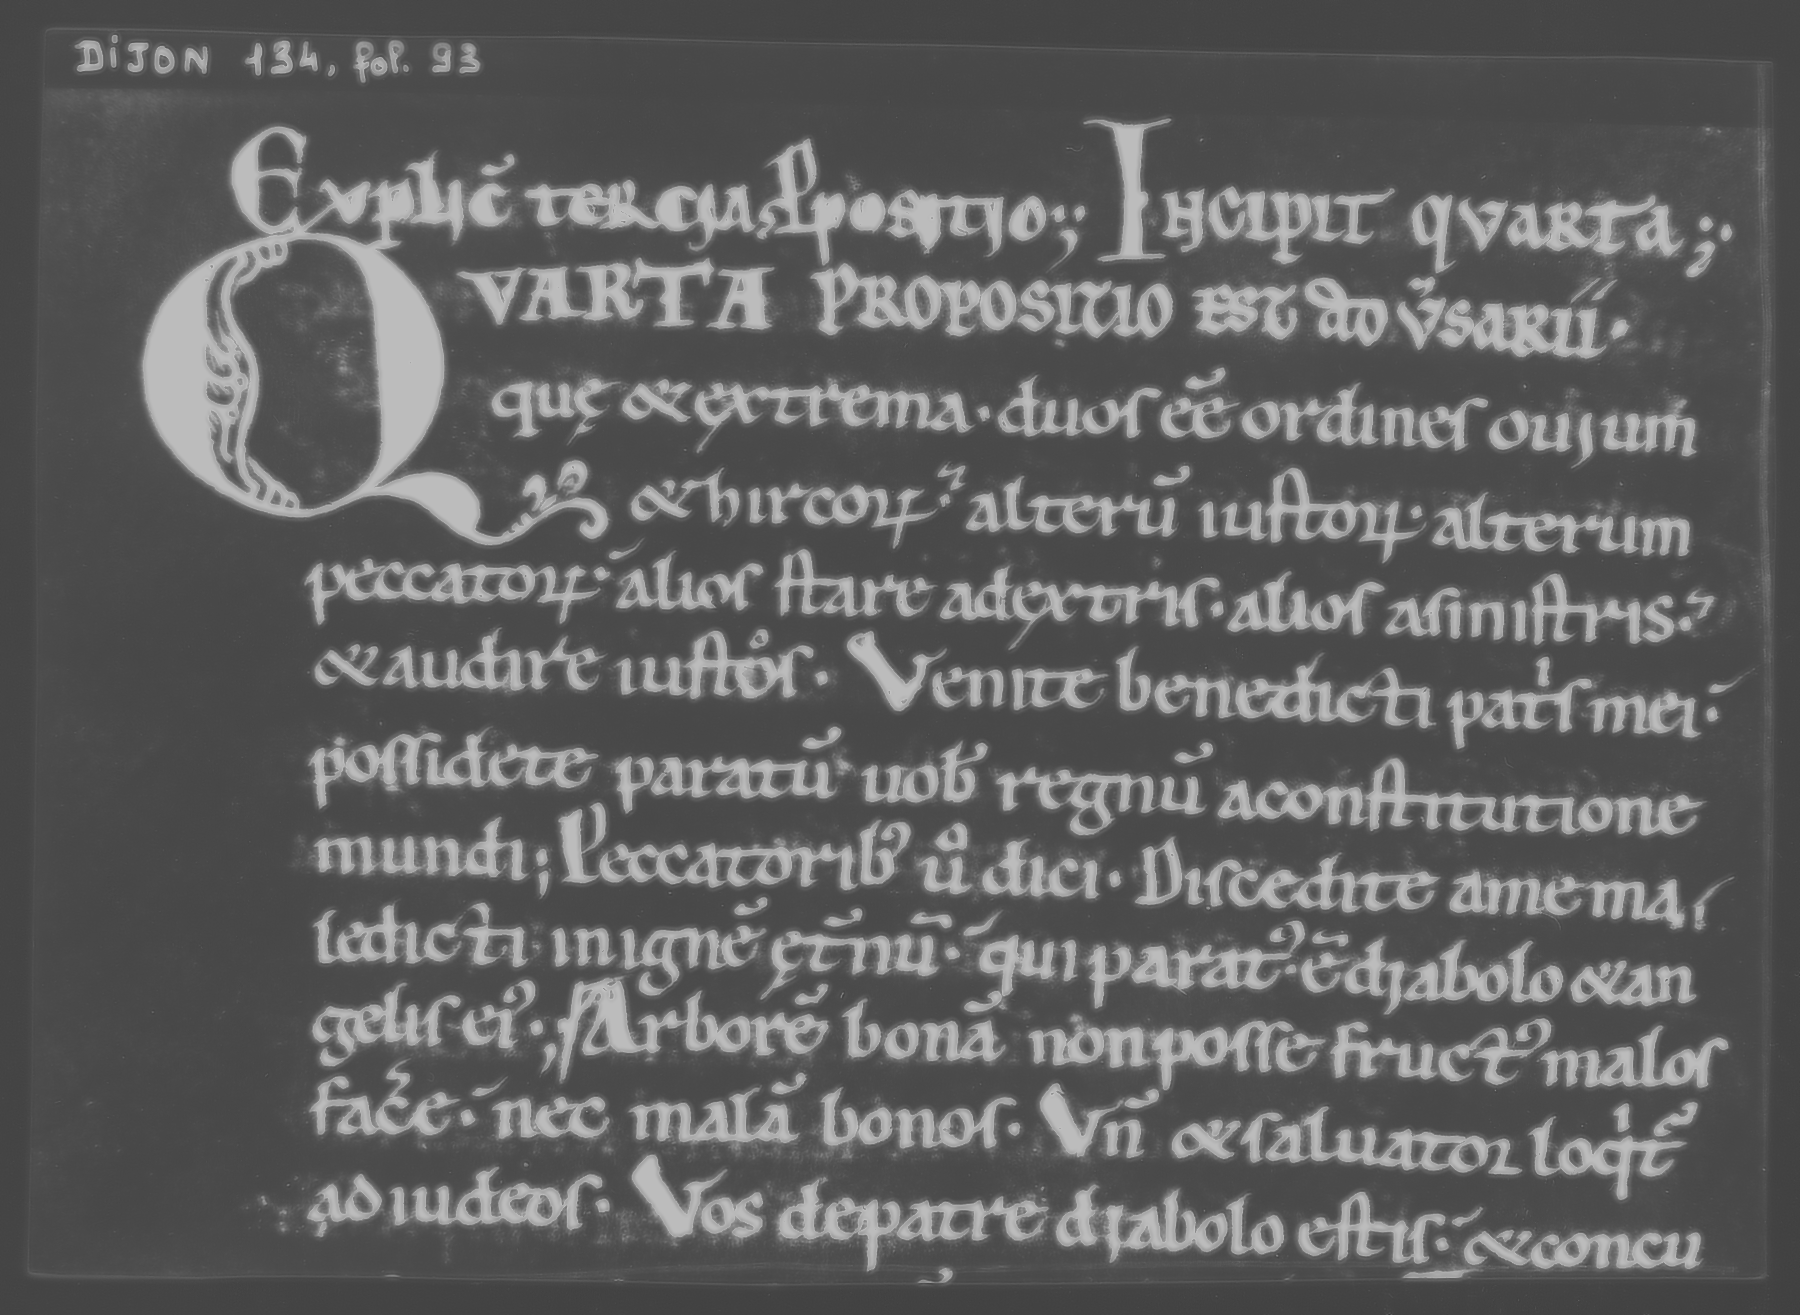 DiJON 134, fol. 93
Explic̄ tercia Ppositio; Incipit qVarta;
QVARTA PROPOSITIO EST ad ũsarii.
quę & ęxtrema. duos eē ordines ouium̄
& hircoꝝ. alterū iustoꝝ. alterum
peccatoꝝ. alios stare adęxtris. alios asinistris.
& audire iustos. Venite benedicti patⁱs mei.
possidete paratū uob̄ regnū aconstitutione
mundi; Peccatorib᾿ uº dici. Discedite amema
ledicti inignē ęt̄nū. qui parat᾿ ē diabolo & an
gelis ei᾿; Arborē bonā nonposse fruct᾿ malos
fac̄e. nec malā bonos. Vn̄ & saluator loqⁱt̄
ad iudeos. Vos depatre diabolo estis. & concu